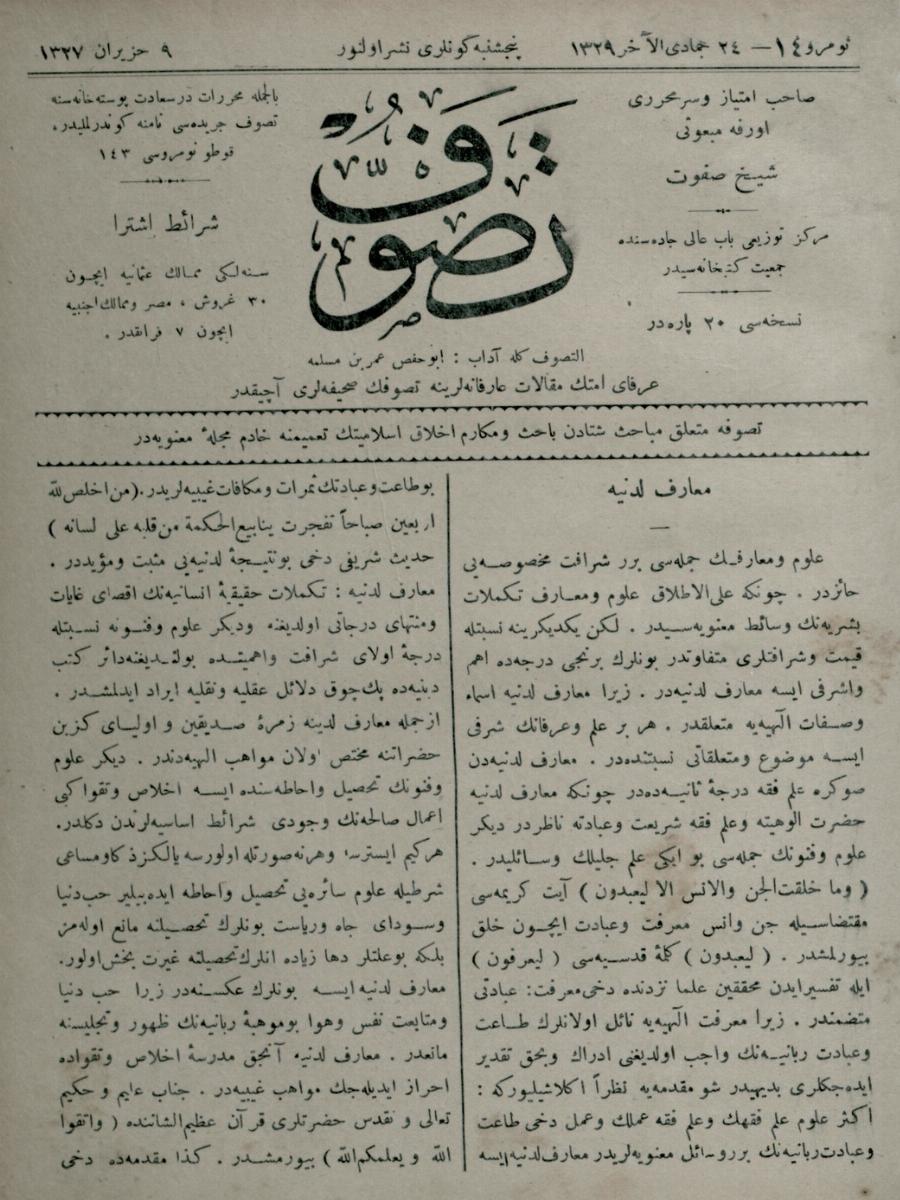 نومرو ١٤ — ٢٤ جمادى الآخر ١٣٢٩ پنجشنبه كونلرى نشر اولنور ٩ حزيران ١٣٢٧
صاحب امتياز وسرمحررى
اورفه مبعوثى
شيخ صفوت
مركز توزيعى باب عالى جاده‌سنده
جمعيت كتبخانه‌سيدر
نسخه‌سى ٢٠ پاره‌در
تصوف
بالجمله محررات درسعادت پوسته‌خانه‌سنه
تصوف جريده‌سى نامنه كوندرلمليدر،
قوطو نومروسى ١٤٣
شرائط اشترا
سنه‌لكى ممالك عثمانيه ايچون
٣٠ غروش ، مصر وممالك اجنبيه
ايچون ٧ فرانقدر .
التصوف كله آداب : ابوحفص عمر بن مسلمه
عرفاى امتك مقالات عارفانه‌لرينه تصوفك صحيفه‌لرى آچيقدر
تصوفه متعلق مباحث شتادن باحث ومكارم اخلاق اسلاميتك تعميمنه خادم مجلهٔ معنويه‌در
معارف لدنيه
علوم ومعارفك جمله‌سى برر شرافت مخصوصه‌يى
حائزدر . چونكه على الاطلاق علوم ومعارف تكملات
بشريه‌نك وسائط معنويه‌سيدر . لكن يكديكرينه نسبتله
قيمت وشرافتلرى متفاوتدر بونلرك برنجى درجه‌ده اهم
واشرفى ايسه معارف لدنيه‌در . زيرا معارف لدنيه اسماء
وصفات الٓهيه‌يه متعلقدر . هر بر علم وعرفانك شرفى
ايسه موضوع ومتعلقاتى نسبتنده‌در . معارف لدنيه‌دن
صوكره علم فقه درجهٔ ثانيه‌ده‌در چونكه معارف لدنيه
حضرت الوهيته وعلم فقه شريعت وعبادته ناظردر ديكر
علوم وفنونك جمله‌سى بو ايكى علم جليلك وسائليدر .
( وما خلقت الجن والانس الا ليعبدون ) آيت كريمه‌سى
مقتضاسيله جن وانس معرفت وعبادت ايچون خلق
بيورلمشدر . ( ليعبدون ) كلمهٔ قدسيه‌سى ( ليعرفون )
ايله تفسير ايدن محققين علما نزدنده دخى معرفت: عبادتى
متضمندر . زيرا معرفت الٓهيه‌يه نائل اولانلرك طاعت
وعبادت ربانيه‌نك واجب اولديغنى ادراك وبحق تقدير
ايده‌جكلرى بديهيدر شو مقدمه‌يه نظراً اكلاشيليوركه :
اكثر علوم علم فقهك وعلم فقه عملك وعمل دخى طاعت
وعبادت ربانيه‌نك برر وسائل معنويه‌لريدر معارف لدنيه ايسه
بو طاعت وعبادتك ثمرات ومكافات غيبيه‌لريدر . (من اخلص لله
اربعين صباحاً تفجرت ينابيع الحكمة من قلبه على لسانه )
حديث شريفى دخى بو نتيجهٔ لدنيه‌يى مثبت ومؤيددر .
معارف لدنيه : تكملات حقيقيهٔ انسانيه‌نك اقصاى غايات
ومنتهاى درجاتى اولديغنه وديكر علوم وفنونه نسبتله
درجهٔ اولاى شرافت واهميتده بولنديغنه دائر كتب
دينيه‌ده پك چوق دلائل عقليه ونقليه ايراد ايدلمشدر .
ازجمله معارف لدينه زمرهٔ صديقين و اولياى كزين
حضراتنه مختص اولان مواهب الهيه‌دندر . ديكر علوم
وفنونك تحصيل واحاطه‌سنده ايسه اخلاص وتقوا كبى
اعمال صالحه‌نك وجودى شرائط اساسيه‌لرندن دكلدر.
هركيم ايسترسه وهر نه صورتله اولورسه يالكز ذكا ومساعى
شرطيله علوم سائره‌يى تحصيل واحاطه ايده‌بيلير حب دنيا
وسوداى جاه ورياست بونلرك تحصيلنه مانع اوله‌مز
بلكه بو علتلر دها زياده انلرك تحصيلنه غيرت بخش اولور.
معارف لدنيه ايسه بونلرك عكسنه‌در زيرا حب دنيا
ومتابعت نفس وهوا بو موهبهٔ ربانيه‌نك ظهور وتجليسنه
مانعدر . معارف لدنيه آنجق مدرسهٔ اخلاص وتقواده
احراز ايديله‌جك مواهب غيبيه‌در . جناب عليم و حكيم
تعالى و تقدس حضرتلرى قرآن عظيم الشاننده ( واتقوا
الله و يعلمكم الله ) بيورمشدر . كذا مقدمه‌ده دخى